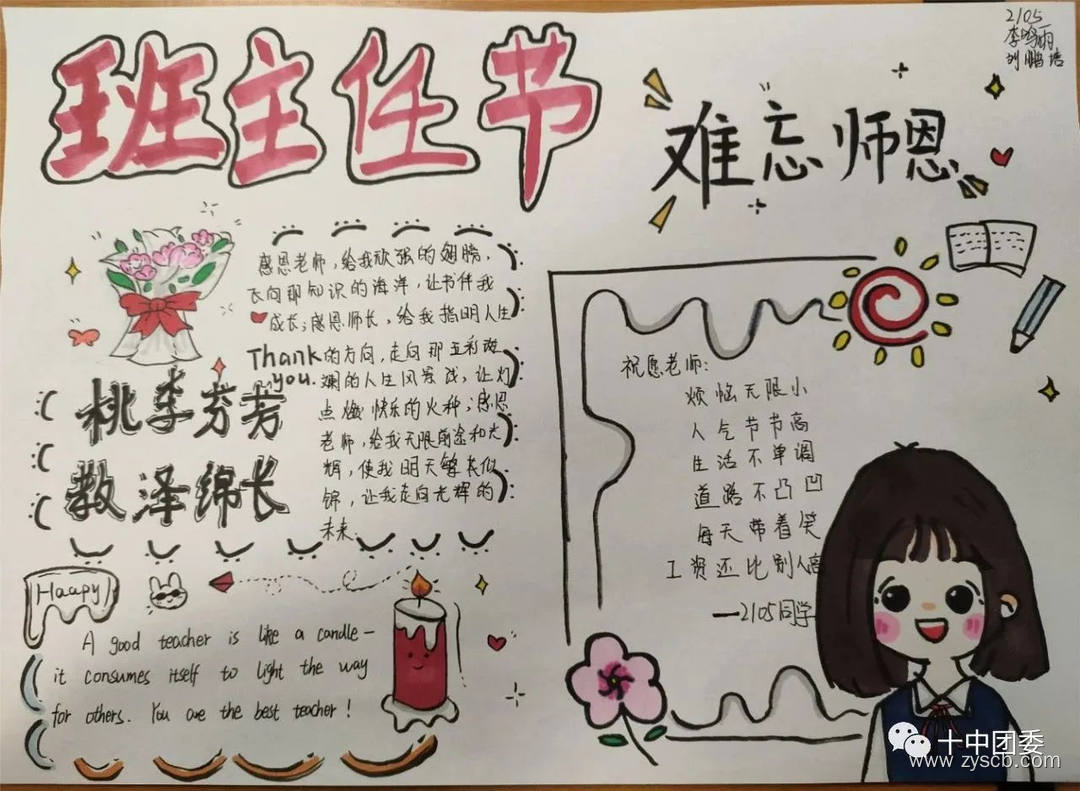 班主任节
难忘师恩
2105
李鸣雨
刘鹏
感恩老师,给我顽强的翅膀,
飞向那知识的海洋,让书伴我
成长;感恩师长,给我指明人生
的方向,走向那五彩斑
斓的人生风景线,让灯
点燃快乐的火种;感恩
老师,给我无限前途和光
辉,使我明天繁花似
锦,让我走向光辉的
未来.
Thank
you.
桃李芬芳
教泽绵长
Haapy
A good teacher is like a candle—
it consumes itself to light the way
for others. You are the best teacher!
祝愿老师:
烦恼无限小
人气节节高
生活不单调
道路不凸凹
每天带着笑
工资还比别人高
——2105同学
十中团委
www.zyscb.com